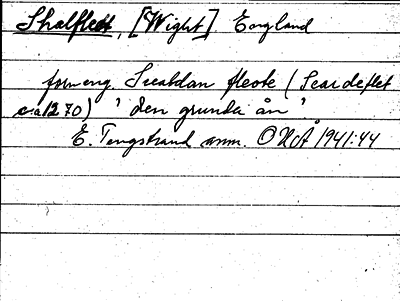 Shalfleet, [Wight]. England
forneng. Scealdan fleote (Scardeflet
ca 1270) "den grunda ån".
E. Tengstrand anm. ONoÅ 1941:44